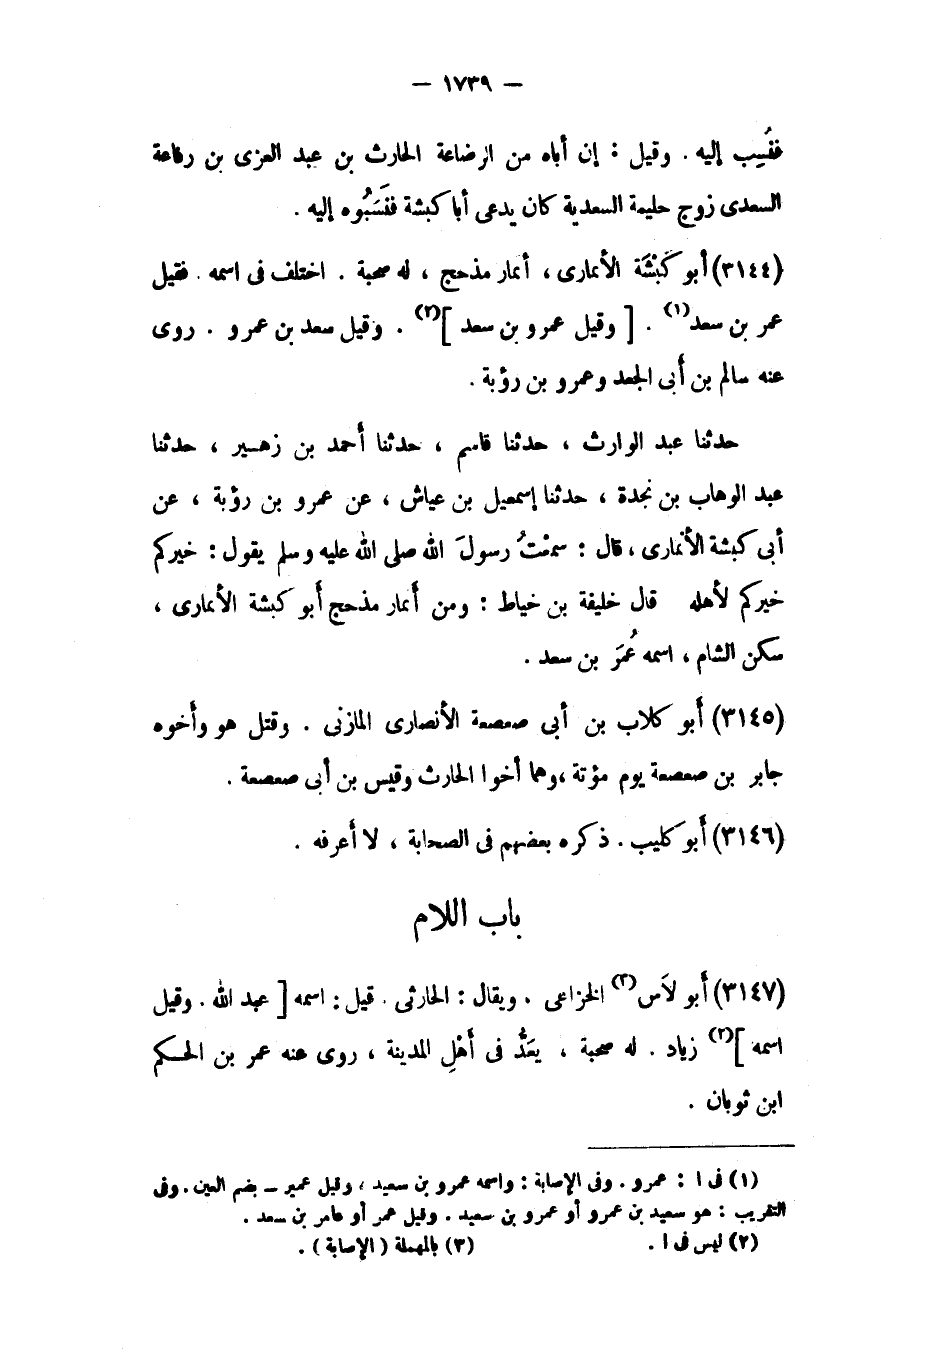 — ١٧٣٩ —
فنُسِب إليه . وقيل : إن أباه من الرضاعة الحارث بن عبد العزى بن رفاعة
السعدى زوج حليمة السعدية كان يدعى أبا كبشة فنَسَبُوه إليه .
(٣١٤٤) أبو كَبْشَة الأنمارى ، أنمار مذحج ، له صحبة . اختلف فى اسمه . فقيل
عمر بن سعد(١) . [ وقيل عمرو بن سعد ](٢) . وقيل سعد بن عمرو . روى
عنه سالم بن أبى الجعد وعمرو بن رؤبة .
حدثنا عبد الوارث ، حدثنا قاسم ، حدثنا أحمد بن زهير ، حدثنا
عبد الوهاب بن نجدة ، حدثنا إسمعيل بن عياش ، عن عمرو بن رؤبة ، عن
أبى كبشة الأنمارى ، قال : سمعْتُ رسولَ الله صلى الله عليه وسلم يقول : خيركم
خيركم لأهله قال خليفة بن خياط : ومن أنمار مذحج أبو كبشة الأنمارى ،
سكن الشام ، اسمه عُمَر بن سعد .
(٣١٤٥) أبو كلاب بن أبى صعصعة الأنصارى المازنى . وقتل هو وأخوه
جابر بن صعصعة يوم مؤتة ،وهما أخوا الحارث وقيس بن أبى صعصعة .
(٣١٤٦) أبو كليب . ذكره بعضهم فى الصحابة ، لا أعرفه .
باب اللام
(٣١٤٧) أبو لاَس(٣) الخزاعى . ويقال : الحارثى . قيل : اسمه [ عبد الله . وقيل
اسمه ](٢) زياد . له صحبة ، يعَدُّ فى أَهْلِ المدينة ، روى عنه عمر بن الحكم
ابن ثوبان .
(١) فى ا : عمرو . وفى الإصابة : واسمه عمرو بن سعيد ، وقيل عمير – بضم العين . وفى
التقريب : هو سعيد بن عمرو أو عمرو بن سعيد . وقيل عمر أو عامر بن سعد .
(٢) ليس فى ا . (٣) بالمهملة ( الإصابة ) .